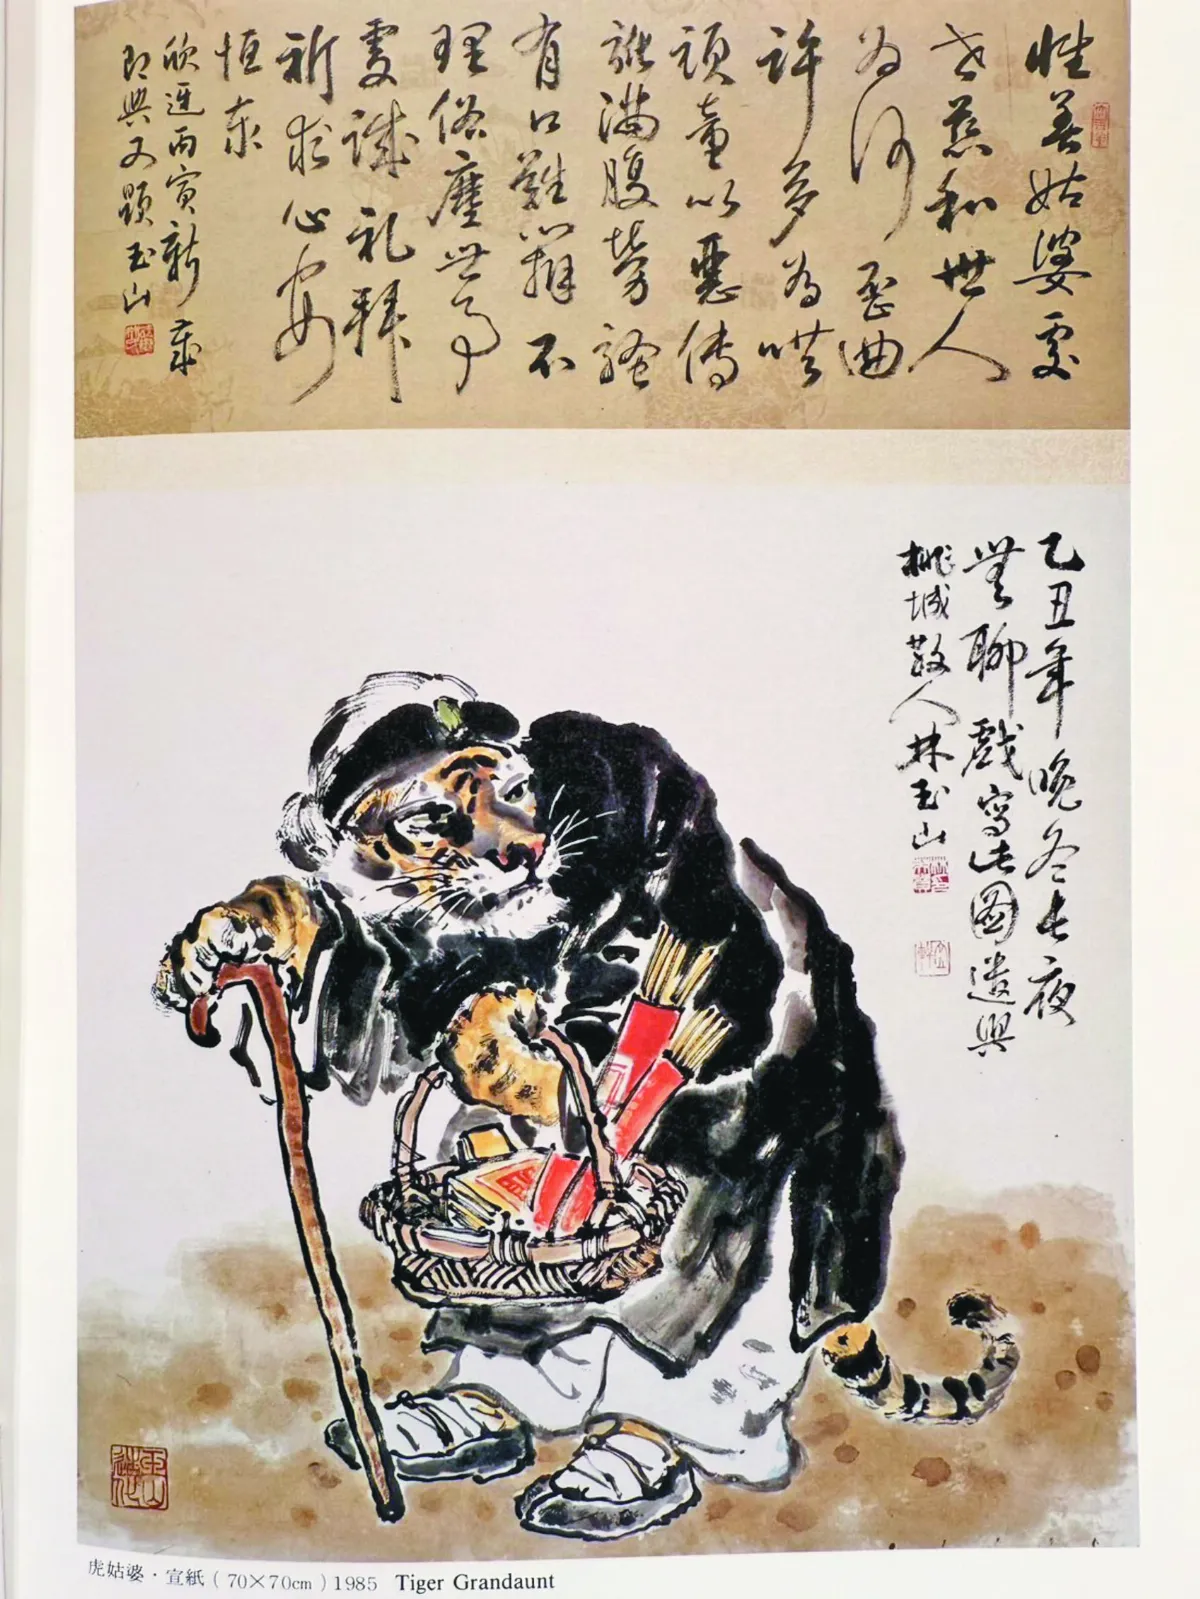 性善姑婆處
世慈和世人
為何歪曲
許多為哄
頑童以惡傳
訛滿腹勞騷
有口難辯不
理俗塵世事
虔誠礼拜
祈求心安
恒泰
欣逢丙寅新歲
即興又題玉山
乙丑年晚冬長夜
無聊戲寫此圖遣興
桃城散人林玉山
虎姑婆·宣紙（70×70cm）1985 Tiger Grandaunt